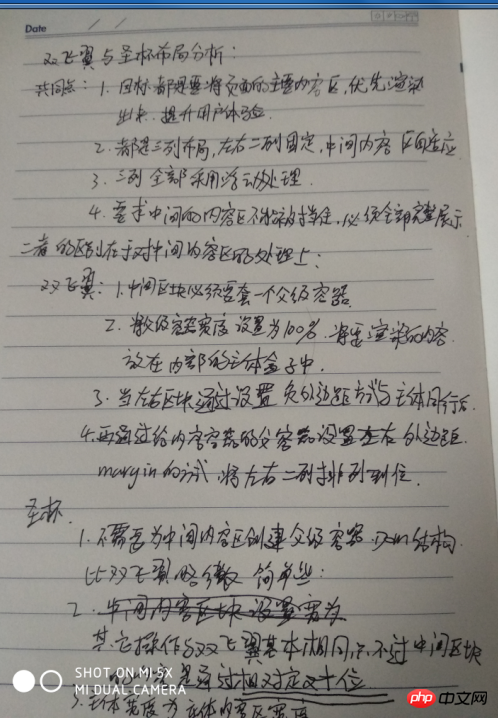 Date
双飞翼与圣杯布局分析:
共同点: 1. 目标都是要将页面的主要内容区,优先渲染
出来. 提升用户体验.
2. 都是三列布局,左右二列固定,中间内容区自适应
3. 三列全部采用浮动处理.
4. 要求中间的内容区不能被挡住,必须全部完整展示
二者的区别在于对中间内容区的处理上:
双飞翼: 1.中间区块必须要套一个父级容器
2. 将父级容器宽度设置为100%. 将要渲染的内容
放在内部的主体盒子中.
3. 当左右区块通过设置负外边距方式与主体同行后.
4.再通过给内容容器的父容器设置左右外边距.
margin的方式 将左右二列排列到位.
圣杯.
1. 不需要为中间内容区创建父级容器. DOM结构
比双飞翼略微 简单些:
2. 中间内容区块设置宽为
其它操作与双飞翼基本相同. 不过中间区块
是通过相对定义十位
主体宽度为主体内容区宽度
SHOT ON MI 5X
MI DUAL CAMERA
php 中文网